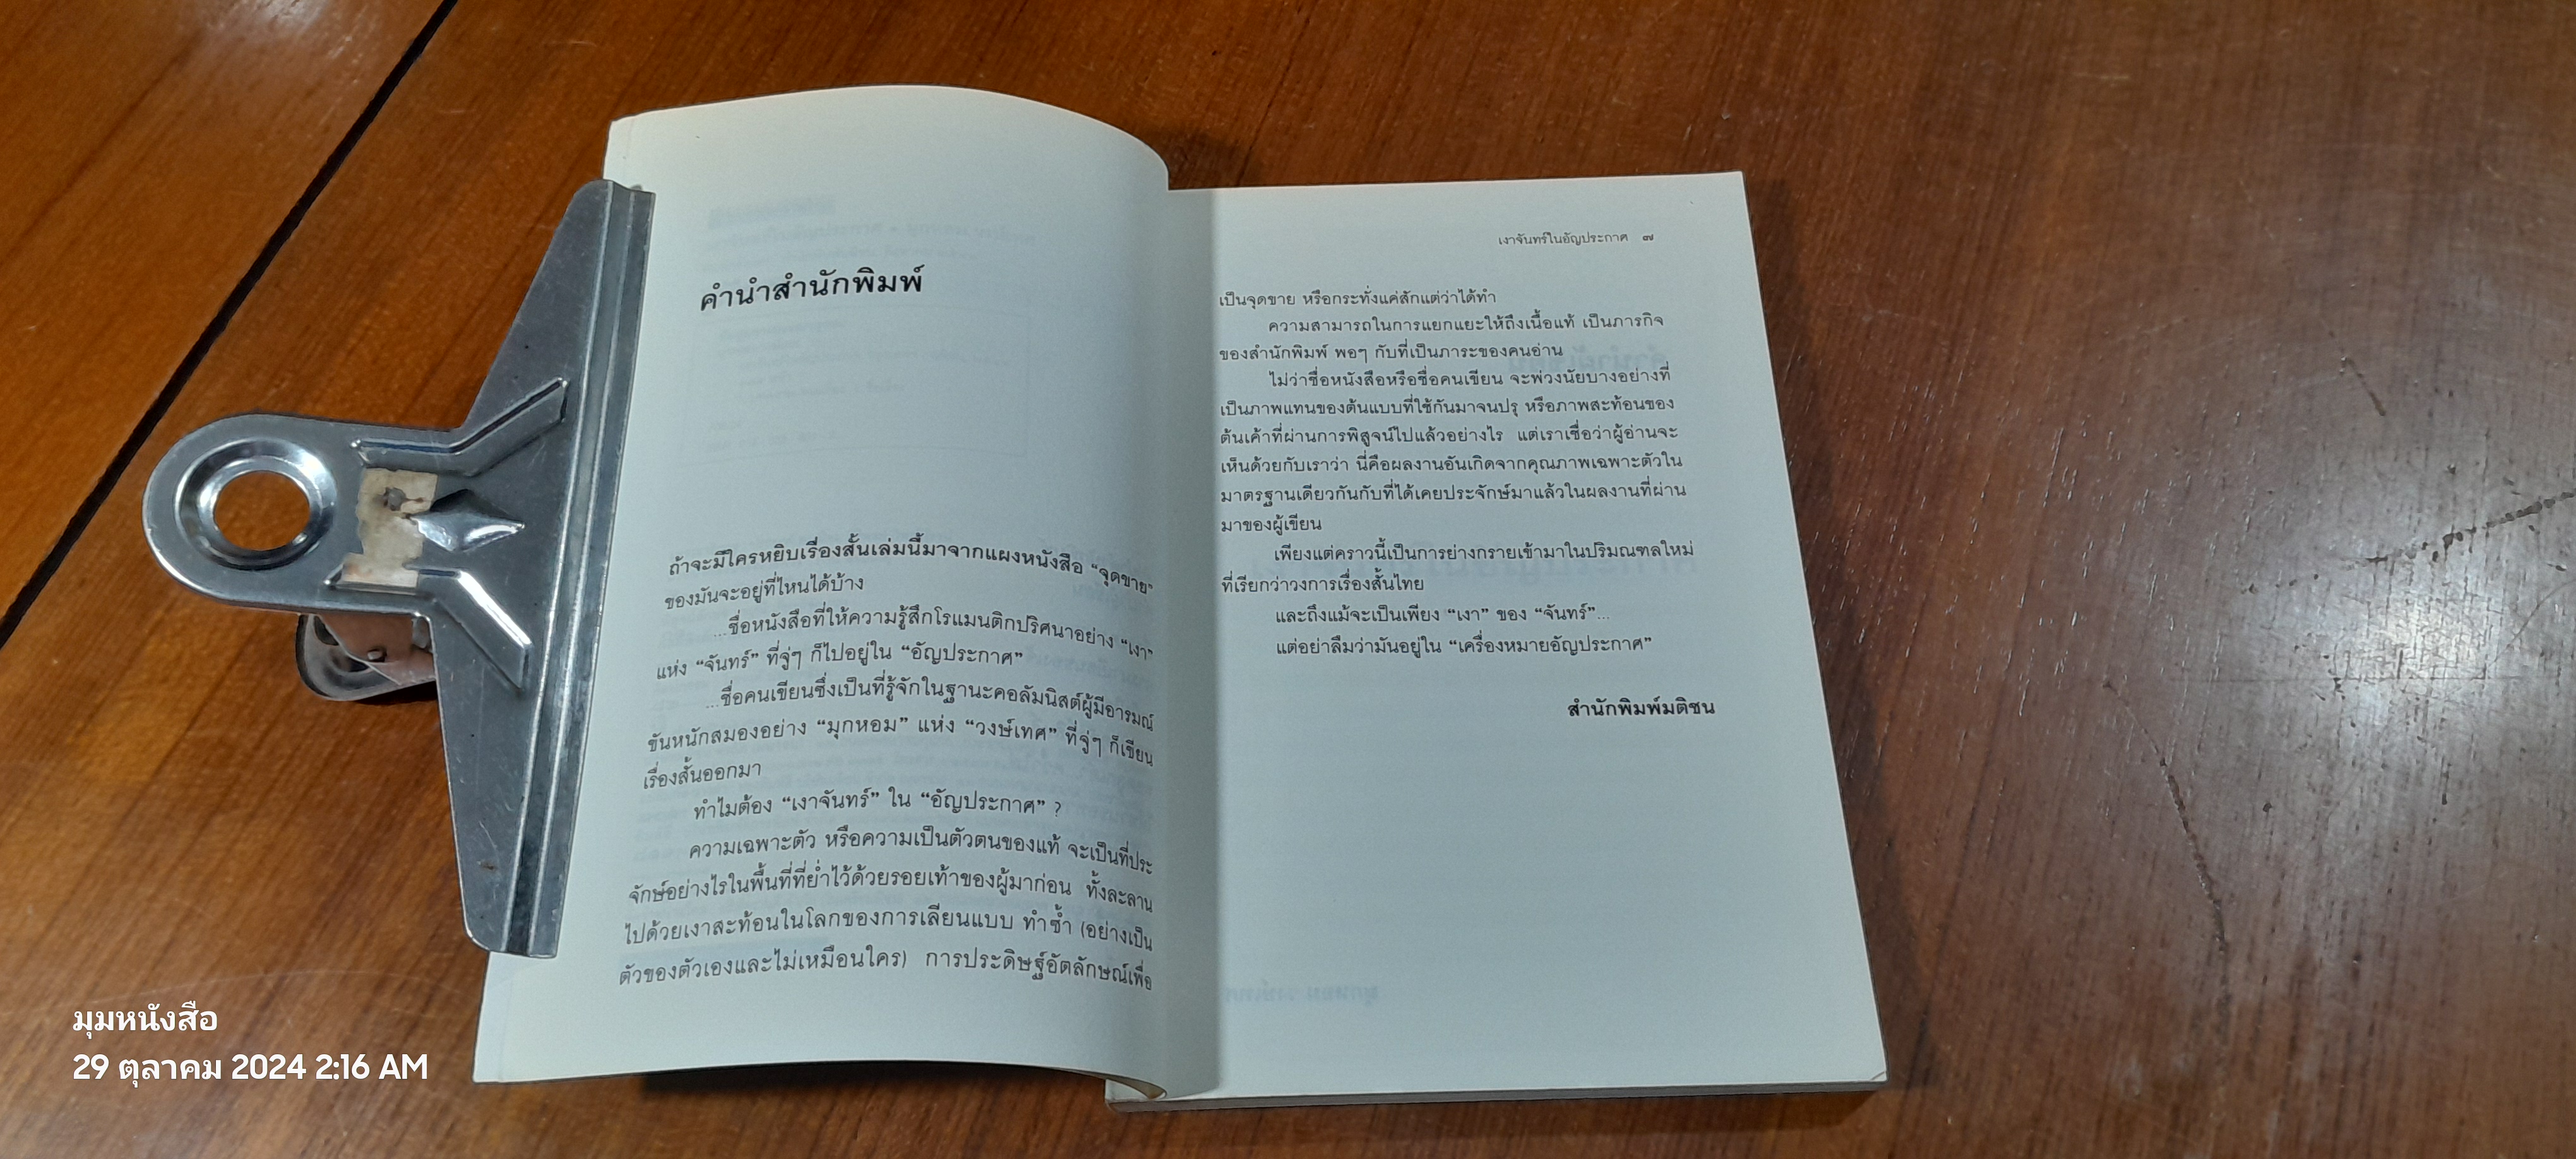 คำนำสำนักพิมพ์
ถ้าจะมีใครหยิบเรื่องสั้นเล่มนี้มาจากแผงหนังสือ “จุดขาย”
ของมันจะอยู่ที่ไหนได้บ้าง
...ชื่อหนังสือที่ให้ความรู้สึกโรแมนติกปริศนาอย่าง “เงา”
แห่ง “จันทร์” ที่จู่ๆ ก็ไปอยู่ใน “อัญประกาศ”
...ชื่อคนเขียนซึ่งเป็นที่รู้จักในฐานะคอลัมนิสต์ผู้มีอารมณ์
ขันหนักสมองอย่าง “มุกหอม” แห่ง “วงษ์เทศ” ที่จู่ๆ ก็เขียน
เรื่องสั้นออกมา
ทำไมต้อง “เงาจันทร์” ใน “อัญประกาศ” ?
ความเฉพาะตัว หรือความเป็นตัวตนของแท้ จะเป็นที่ประ
จักษ์อย่างไรในพื้นที่ที่ย่ำไว้ด้วยรอยเท้าของผู้มาก่อน ทั้งละลาน
ไปด้วยเงาสะท้อนในโลกของการเลียนแบบ ทำซ้ำ (อย่างเป็น
ตัวของตัวเองและไม่เหมือนใคร) การประดิษฐ์อัตลักษณ์เพื่อ
เงาจันทร์ในอัญประกาศ ๗
เป็นจุดขาย หรือกระทั่งแค่สักแต่ว่าได้ทำ
ความสามารถในการแยกแยะให้ถึงเนื้อแท้ เป็นภารกิจ
ของสำนักพิมพ์ พอๆ กับที่เป็นภาระของคนอ่าน
ไม่ว่าชื่อหนังสือหรือชื่อคนเขียน จะพ่วงนัยบางอย่างที่
เป็นภาพแทนของต้นแบบที่ใช้กันมาจนปรุ หรือภาพสะท้อนของ
ต้นเค้าที่ผ่านการพิสูจน์ไปแล้วอย่างไร แต่เราเชื่อว่าผู้อ่านจะ
เห็นด้วยกับเราว่า นี่คือผลงานอันเกิดจากคุณภาพเฉพาะตัวใน
มาตรฐานเดียวกันกับที่ได้เคยประจักษ์มาแล้วในผลงานที่ผ่าน
มาของผู้เขียน
เพียงแต่คราวนี้เป็นการย่างกรายเข้ามาในปริมณฑลใหม่
ที่เรียกว่าวงการเรื่องสั้นไทย
และถึงแม้จะเป็นเพียง “เงา” ของ “จันทร์”...
แต่อย่าลืมว่ามันอยู่ใน “เครื่องหมายอัญประกาศ”
สำนักพิมพ์มติชน
มุมหนังสือ
29 ตุลาคม 2024 2:16 AM